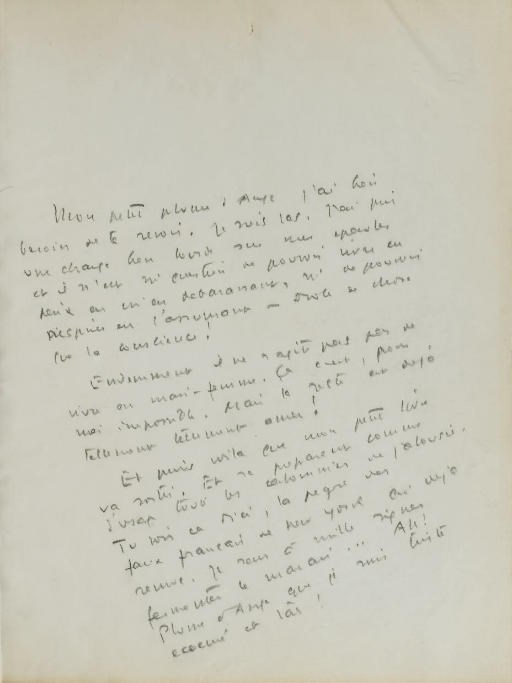 Mon petit plume d'Ange j'ai bien
besoin de te revoir. Je suis las. J'ai pris
une charge bien lourde sur mes épaules
et il n'est ni question de pouvoir vivre en
paix en m'en débarrassant, ni de pouvoir
respirer en l'assumant — drôle de chose
que la conscience !
Evidemment il ne s'agit pas de
vivre en mari-femme. Ça c'est, pour
moi impossible. Mais le reste est déjà
tellement tellement amer !
Et puis voilà que mon petit livre
va sortir. Et se préparent comme
d'usage tous les calomnies de jalousie.
Tu sais ce ici, la pègre des
faux français de New York qui déjà
remue. Je sens à mille signes
fermenter le marais ... Ah !
Plume d'Ange que je suis triste
écœuré et las !